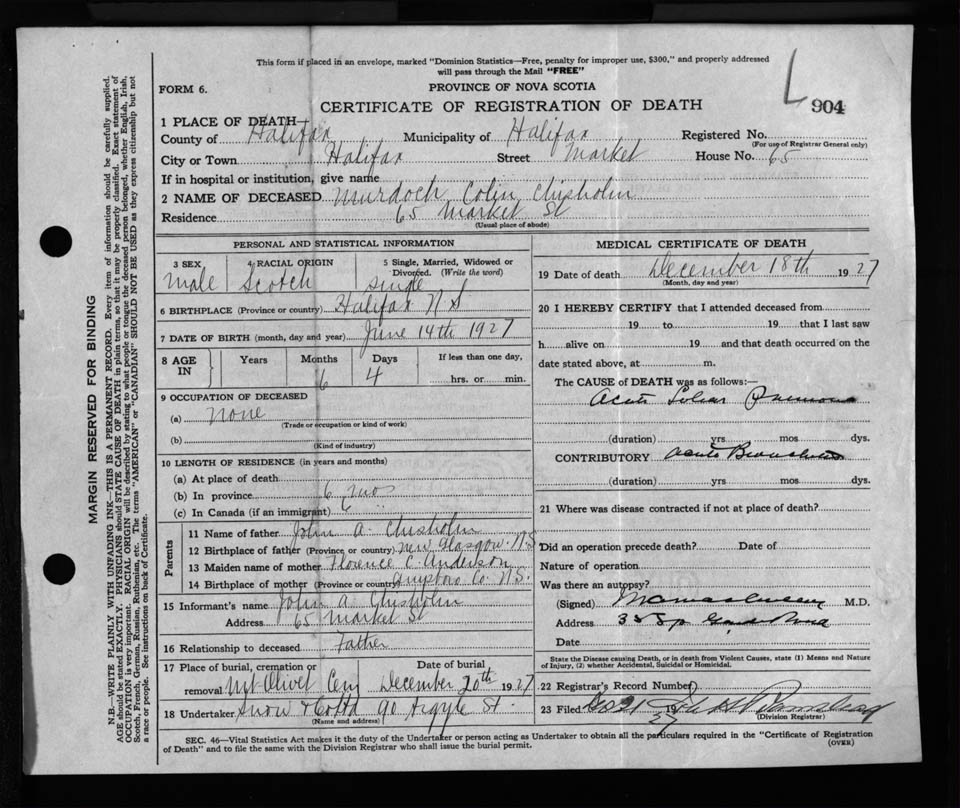 This form if placed in an envelope, marked "Dominion Statistics—Free, penalty for improper use, $300," and properly addressed
will pass through the Mail "FREE"
L
904
FORM 6.
PROVINCE OF NOVA SCOTIA
CERTIFICATE OF REGISTRATION OF DEATH
1 PLACE OF DEATH
County of Halifax Municipality of Halifax Registered No.
(For use of Registrar General only)
City or Town Halifax Street Market House No. 65
If in hospital or institution, give name
2 NAME OF DECEASED Murdoch Colin Chisholm
Residence 65 Market St
(Usual place of abode)
PERSONAL AND STATISTICAL INFORMATION
3 SEX 4 RACIAL ORIGIN 5 Single, Married, Widowed or Divorced. (Write the word)
Male Scotch single
6 BIRTHPLACE (Province or country) Halifax N S
7 DATE OF BIRTH (month, day and year) June 14th 1927
8 AGE IN Years Months Days If less than one day,
6 4 hrs. or min.
9 OCCUPATION OF DECEASED
(a) none
(Trade or occupation or kind of work)
(b)
(Kind of industry)
10 LENGTH OF RESIDENCE (in years and months)
(a) At place of death
(b) In province 6 mos
(c) In Canada (if an immigrant) 6 "
Parents
11 Name of father John A Chisholm
12 Birthplace of father (Province or country) New Glasgow N S
13 Maiden name of mother Florence C Anderson
14 Birthplace of mother (Province or country) Co N.S.
15 Informant's name John A Chisholm
Address 65 Market St
16 Relationship to deceased Father
17 Place of burial, cremation or removal Mt Olivet Cem Date of burial December 20th 1927
18 Undertaker Snow & 90 Argyle St.
(Name and address)
MEDICAL CERTIFICATE OF DEATH
19 Date of death December 18th 1927
(Month, day and year)
20 I HEREBY CERTIFY that I attended deceased from
19 to 19 that I last saw
h alive on 19 and that death occurred on the
date stated above, at m.
The CAUSE of DEATH was as follows:—
Acute Lobar
(duration) yrs mos dys.
CONTRIBUTORY Acute
(duration) yrs mos dys.
21 Where was disease contracted if not at place of death?
Did an operation precede death? Date of
Nature of operation
Was there an autopsy?
(Signed) M.D.
Address
Date
State the Disease causing Death, or in death from Violent Causes, state (1) Means and Nature
of Injury, (2) whether Accidental, Suicidal or Homicidal.
22 Registrar's Record Number
23 Filed 19 27
(Division Registrar)
SEC. 46—Vital Statistics Act makes it the duty of the Undertaker or person acting as Undertaker to obtain all the particulars required in the "Certificate of Registration
of Death" and to file the same with the Division Registrar who shall issue the burial permit.
(OVER)
MARGIN RESERVED FOR BINDING
N.B.—WRITE PLAINLY WITH UNFADING INK—THIS IS A PERMANENT RECORD. Every item of information should be carefully supplied.
AGE should be stated EXACTLY. PHYSICIANS should STATE CAUSE OF DEATH in plain terms, so that it may be properly classified. Exact statement of
OCCUPATION is very important. RACIAL ORIGIN will be described by stating to what people or tongue the deceased person belonged, whether English, Irish,
Scotch, French, German, Russian, Ruthenian, etc. The terms "AMERICAN" or "CANADIAN" SHOULD NOT BE USED as they express citizenship but not
a race or people. See instructions on back of Certificate.